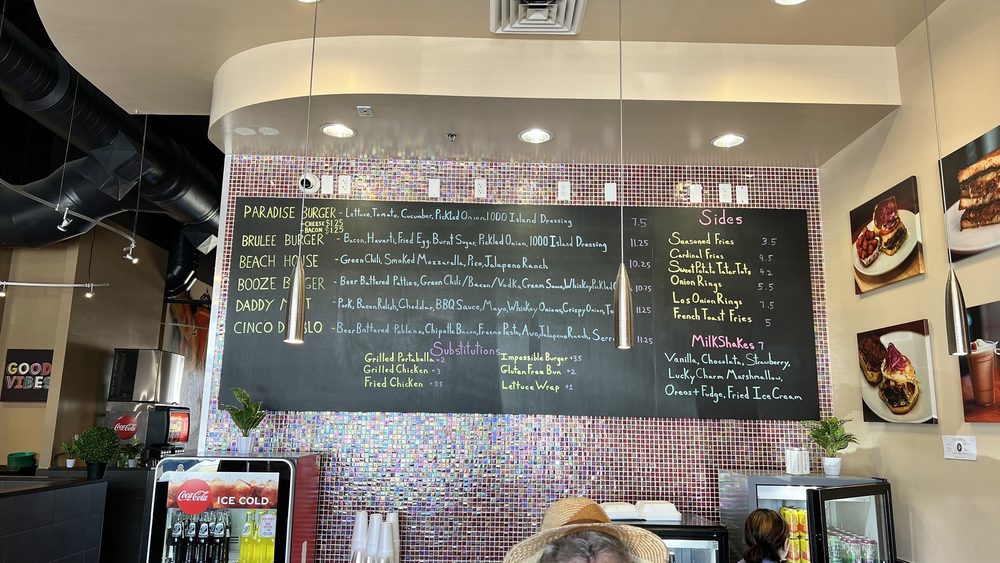 PARADISE BURGER - Lettuce, Tomato, Cucumber, Pickled Onion, 1000 Island Dressing 7.5
-CHEESE $1.25
-BACON $1.25
BRULEE BURGER - Bacon, Havarti, Fried Egg, Burnt Sugar, Pickled Onion, 1000 Island Dressing 11.25
BEACH HOUSE - Green Chili, Smoked Mozzarella, Pico, Jalapeno Ranch 10.25
BOOZE BURGER - Beer Battered Patties, Green Chili/Bacon/Vodk. Cream Sauce, Whiskey Pickled
DADDY - Pork, Bacon Relish, Cheddar, BBQ Sauce, Mayo, Whiskey Onions, Crispy Onion, To 11.25
CINCO D BLO - Beer Battered Poblano, Chipotle Bacon, Fresno Pesto, Avo, Jalapeno Ranch, Serra 11.25
Substitutions
Grilled Portabella +2
Grilled Chicken +3
Fried Chicken +3.5
Impossible Burger +3.5
Gluten Free Bun +2
Lettuce Wrap +1
Sides
Seasoned Fries 3.5
Cardinal Fries 9.5
Sweet Potato Tater Tots 4.2
Onion Rings 5.5
Los Onion Rings 7.5
French Toast Fries 5
MilkShakes 7
Vanilla, Chocolate, Strawberry,
Lucky Charm Marshmallow,
Oreos + Fudge, Fried Ice Cream
GOOD
VIBES
Coca-Cola
Coca-Cola ICE COLD